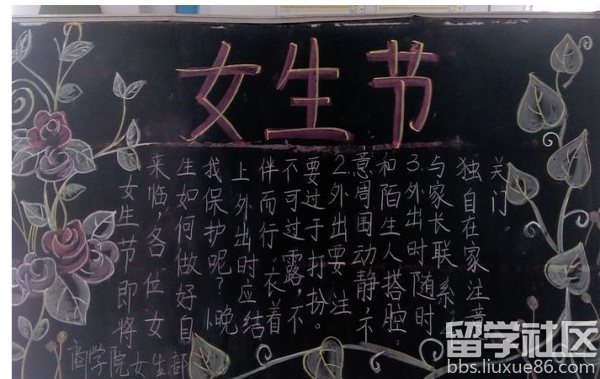 女生节
女生节即将
来临,各位女
生如何做好自
我保护呢?晚
上外出时应结
伴而行,衣着
不可过露,不
要过于打扮。
2.外出要注
意周围动静不
和陌生人搭腔.
3.外出时随时
与家长联系.
独自在家注意
关门
商学院女生部
留学社区
bbs.liuxue86.com